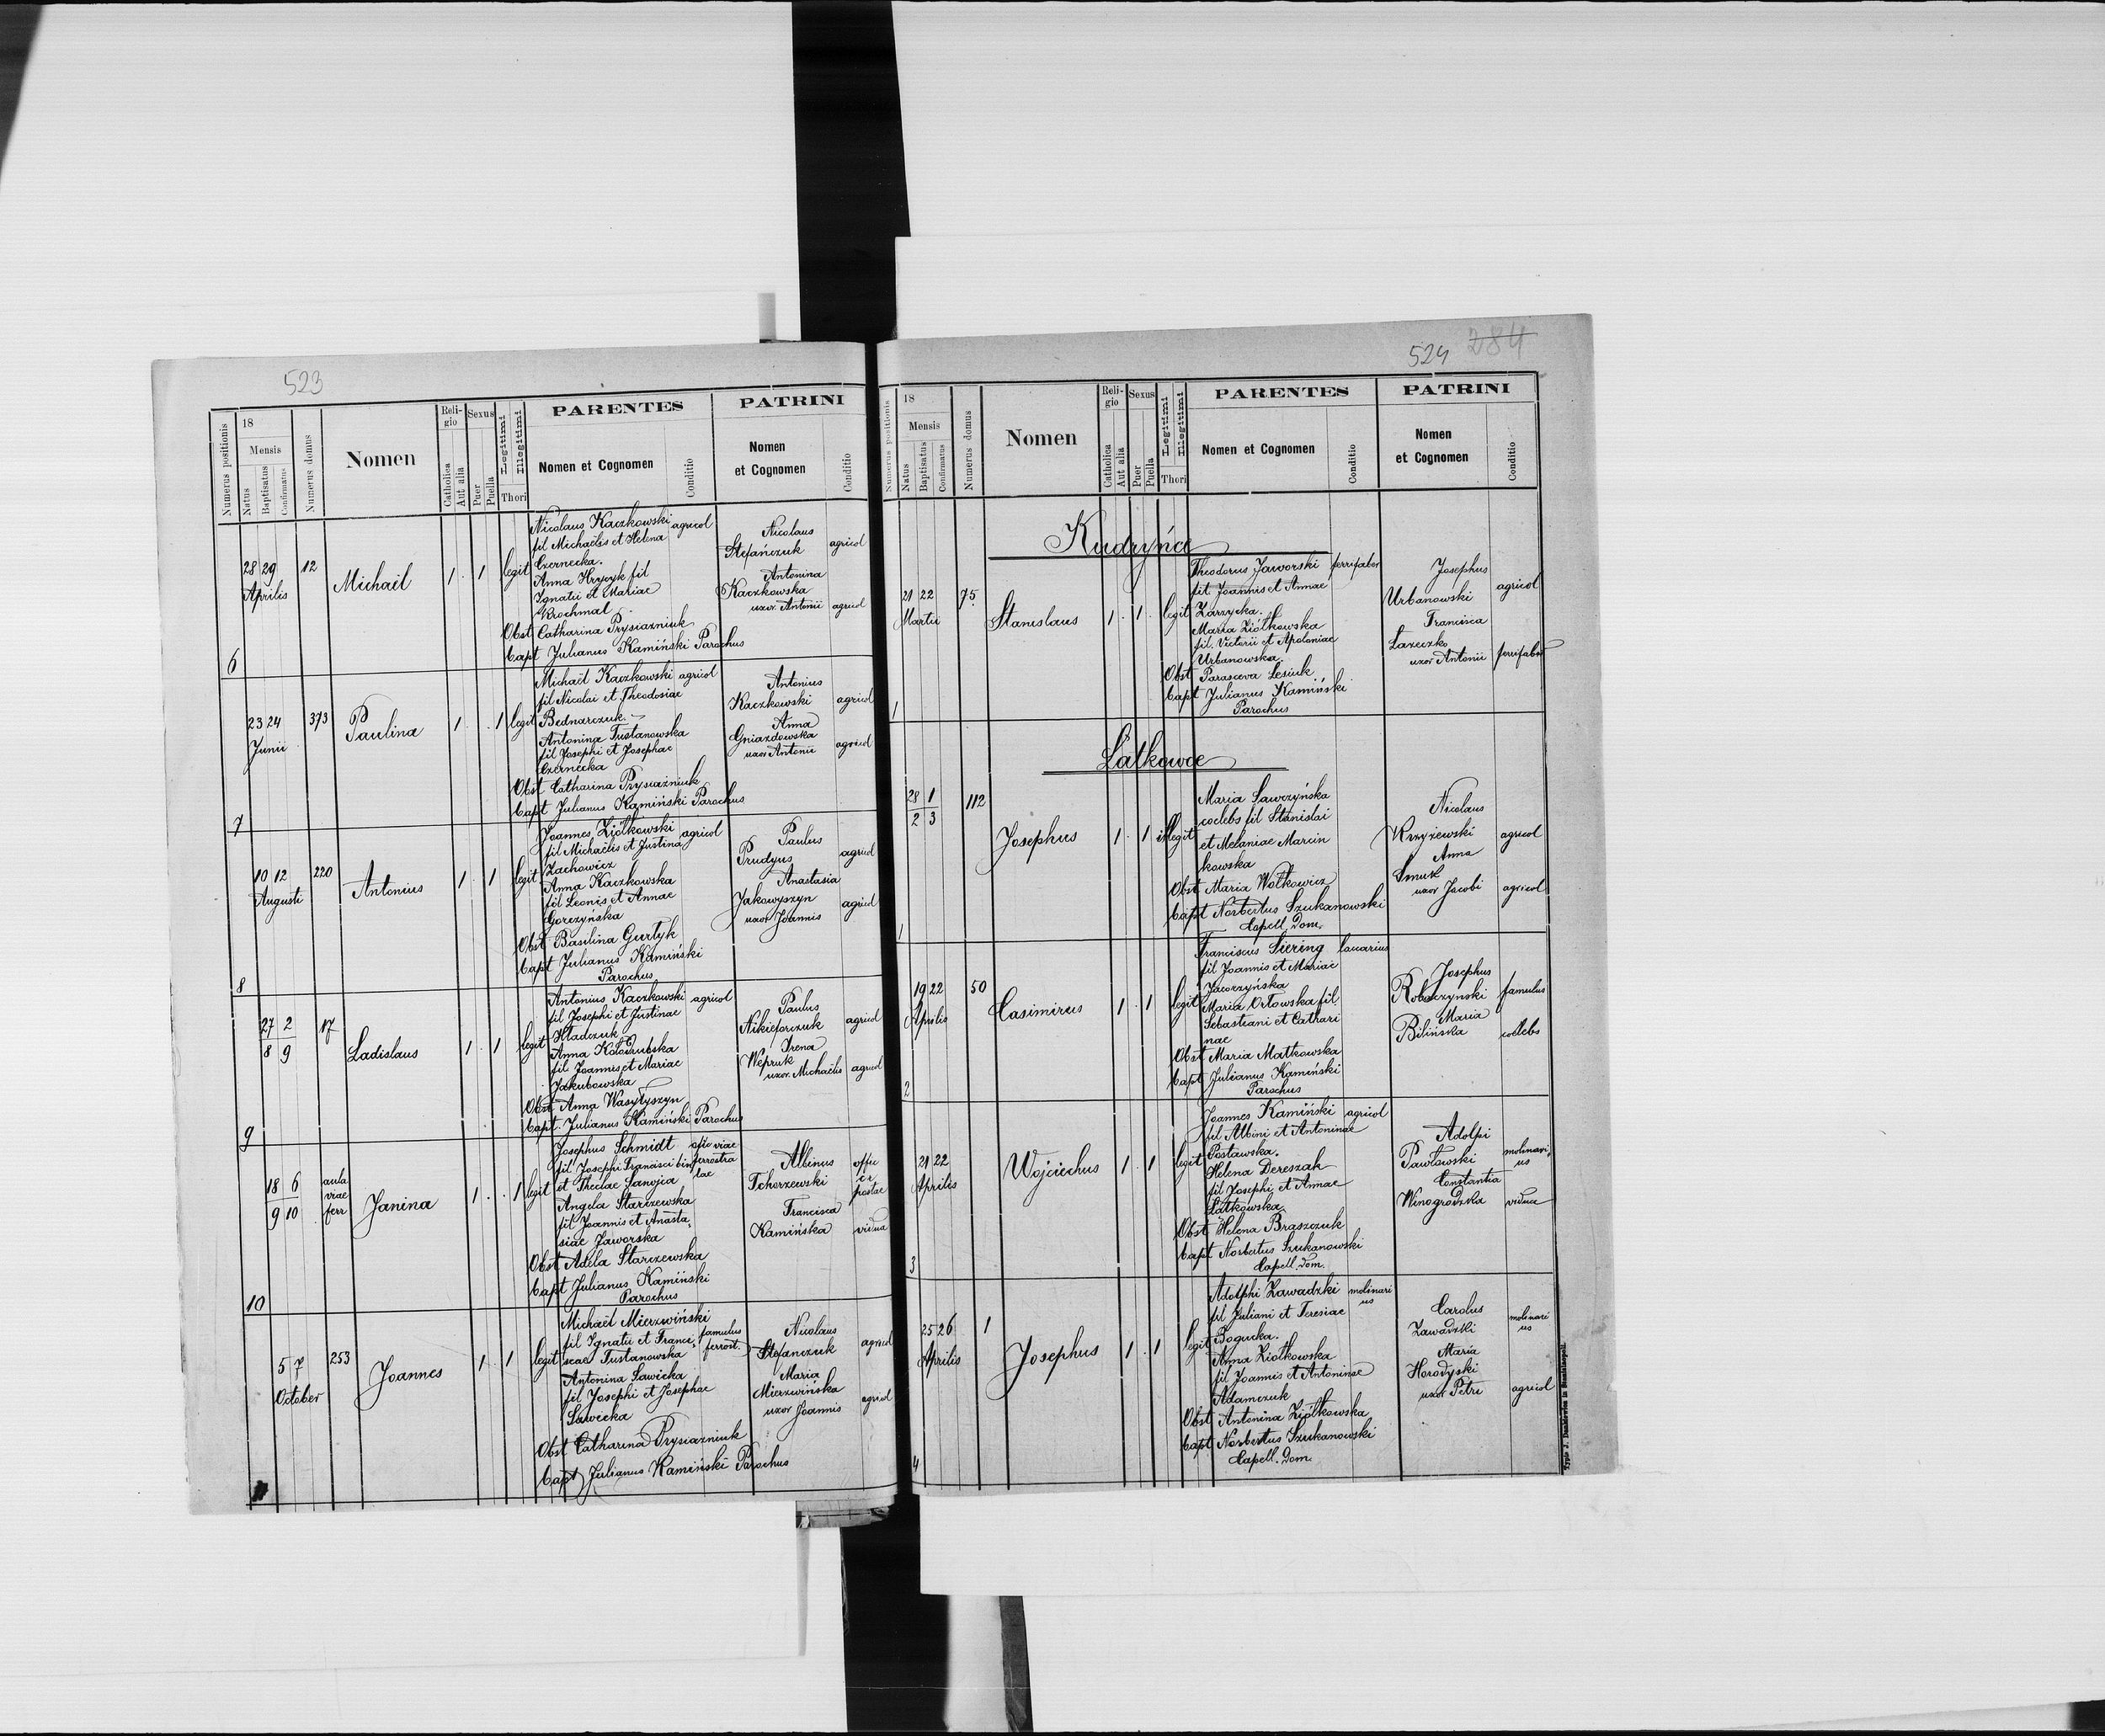 523
Numerus positionis
18
Mensis
Natus
Baptisatus
Confirmatus
Numerus domus
Nomen
Reli-
gio
Catholica
Aut alia
Sexus
Puer
Puella
Legitimi
Illegitimi
Thori
PARENTES
Nomen et Cognomen
Conditio
PATRINI
Nomen
et Cognomen
Conditio
6
28 29
Aprilis
12
Michaël
1 1
legit
Nicolaus Kaczkowski agricol
fil Michaëlis et Helena
Czernecka.
Anna Hrycyk fil
Ignatii et Mariae
Krochmal
Obst Catharina Prysiazniuk
Bapt Julianus Kamiński Parochus
Nicolaus
Stefańczuk agricol
Antonina
Kaczkowska
uxor Antonii agricol
7
23 24
Junii
373
Paulina
1 1
legit
Michaël Kaczkowski agricol
fil Nicolai et Theodosiae
Bednarczuk
Antonina Tustanowska
fil Josephi et Josephae
Czernecka
Obst Catharina Prysiazniuk
Bapt Julianus Kamiński Parochus
Antonius
Kaczkowski agricol
Anna
Gniazdowska
uxor Antonii agricol
8
10 12
Augusti
220
Antonius
1 1
legit
Joannes Ziółkowski agricol
fil Michaëlis et Justina
Zachowicz
Anna Kaczkowska
fil Leonis et Annae
Gorczyńska
Obst Basilina Gurtyk
Bapt Julianus Kamiński
Parochus
Paulus
Prudyus agricol
Anastasia
Jakowyszyn agricol
uxor Joannis
9
27 2
8 9
17
Ladislaus
1 1
legit
Antonius Kaczkowski agricol
fil Josephi et Justinae
Hladczuk
Anna Kołodrubska
fil Joannis et Mariae
Jakubowska
Obst Anna Wasylyszyn
Bapt. Julianus Kamiński Parochus
Paulus
Nikieforczuk agricol
Irena
Wepruk
uxor Michaëlis agricol
10
18 6
9 10
aula
viae
ferr
Janina
1 1
legit
Josephus Schmidt offic viae
fil Josephi Francisci bin ferrostra
et Theclae Sanojca lae
Angela Starczewska
fil Joannis et Anasta,
siae Jaworska
Obst Adela Starczewska
Bapt Julianus Kamiński
Parochus
Albinus
Tchorzewski
postae
Francisca
Kamińska vidua
5 7
October
253
Joannes
1 1
legit
Michaël Mierzwiński
fil Ignatii et Franci, famulus
scae Tustanowska ferrost.
Antonina Sawicka
fil Josephi et Josephae
Sawicka
Obst Catharina Prysiazniuk
Bapt Julianus Kamiński Parochus
Nicolaus
Stefanczuk agricol
Maria
Mierzwińska
uxor Joannis agricol
524 284
Numerus positionis
18
Mensis
Natus
Baptisatus
Confirmatus
Numerus domus
Nomen
Reli-
gio
Catholica
Aut alia
Sexus
Puer
Puella
Legitimi
Illegitimi
Thori
PARENTES
Nomen et Cognomen
Conditio
PATRINI
Nomen
et Cognomen
Conditio
Kudryńce
1
21 22
Martii
75
Stanislaus
1 1
legit
Theodorus Jaworski ferrifaber
fil Joannis et Annae
Zarzycka.
Maria Ziółkowska
fil. Victorii et Apoloniae
Urbanowska
Obst Parasceva Lesiuk
Bapt Julianus Kamiński
Parochus
Josephus
Urbanowski agricol
Francisca
Lazeczko
uxor Antonii ferrifaber
Łatkowce
1
28 1
2 3
112
Josephus
1 1
illegit
Maria Sawczyńska
coelebs fil Stanislai
et Melaniae Marcin
kowska
Obst Maria Wołkowicz
Bapt Norbertus Szukanowski
Capell. Dom.
Nicolaus
Krzyżewski agricol
Anna
Smuk
uxor Jacobi agricol
2
19 22
Aprilis
50
Casimirus
1 1
legit
Franciscus Siering
fil Joannis et Mariae
Jaworzyńska
Maria Orłowska fil
Sebastiani et Cathari
nae
Obst Maria Matkowska
Bapt Julianus Kamiński
Parochus
Josephus
Robaczynski famulus
Maria
Bilińska coelebs
3
21 22
Aprilis
Wojciechus
1 1
legit
Joannes Kamiński agricol
fil Albini et Antoninae
Postawska.
Helena Dereszak
fil Josephi et Annae
Łatkowska
Obst Helena Braszczuk
Bapt Norbertus Szukanowski
Capell. Dom.
Adolfi
Pawłowski molinari,
us
Constantia
Winogrodzka vidua
4
25 26
Aprilis
1
Josephus
1 1
legit
Adolphi Zawadzki molinari
us
fil Juliani et Teresiae
Bogucka.
Anna Ziółkowska
fil Joannis et Antoninae
Adamczuk
Obst Antonina Ziółkowska
Bapt Norbertus Szukanowski
Capell. Dom.
Carolus
Zawadzki molinari
us
Maria
Horodyski
uxor Petri agricol
Typis J. Dankiewicz in Stanislaopoli.